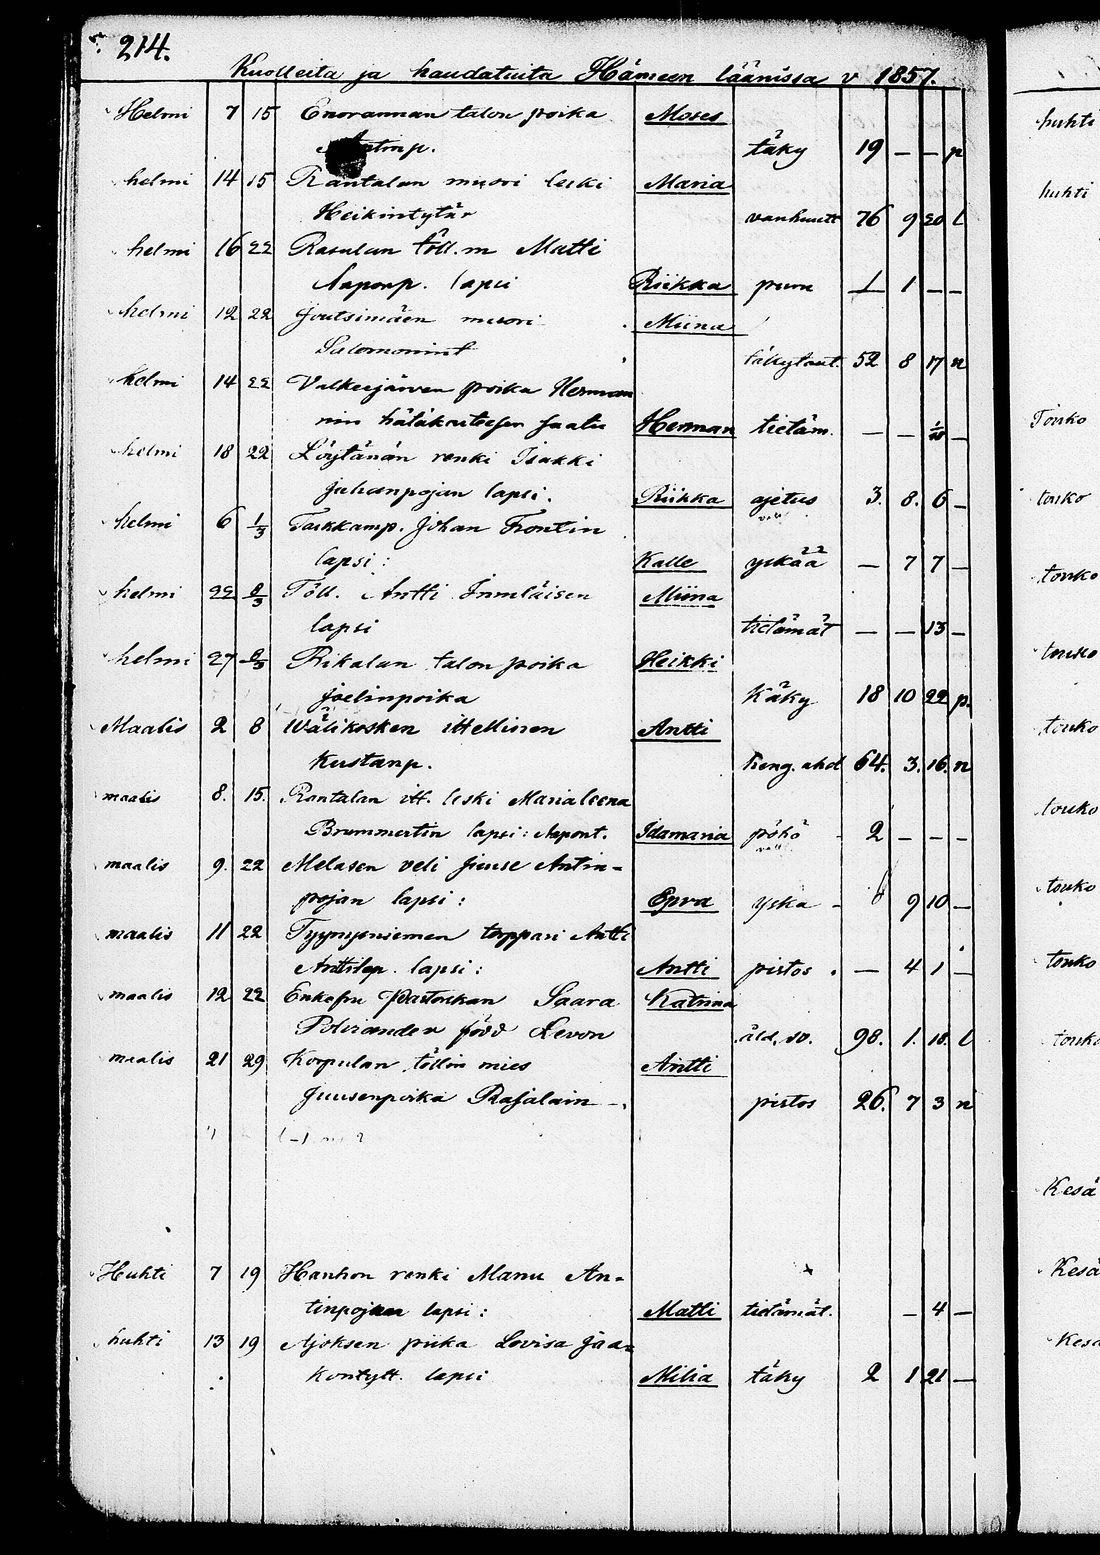 214.
Kuolleita ja haudatuita Hämeen läänissa v 1857.
Helmi 7 15 Enorannan talon poika Moses
täky 19 — — p
helmi 14 15 Rantalan muori leski Maria
Heikintytär vanhuutt 76 9 20 l
helmi 16 22 Rasulan töll. m Matti
Aaponp. lapsi Riikka puru 1 1 — —
helmi 12 22 Joutsimäen muori Miina
Salomonint täkytaut. 52 8 17 n
helmi 14 22 Valkeejärven poika Herman
nin Herman tietäm. — — —
helmi 18 22 Löytänän renki Isakki
Juhanpojan lapsi. Riikka ajetus 3. 8. 6 —
helmi 6 1/3 Tarkkamp. Johan Frontin
lapsi: Kalle yskää — 7 7 —
helmi 22 8/3 Töll. Antti Immläisen Miina
lapsi tietämät — — 13 —
helmi 27 8/3 Rikalan talon poika Heikki
Joelinpoika Käky 18 10 22 p.
Maalis 2 8 Wälikosken ittellinen Antti
Kustanp. heng. ahd 64. 3. 16. n
maalis 8. 15. Rantalan itt. leski Marialeena
Brummertin lapsi: Aapont. Idamaria pöhö 2 — — —
maalis 9. 22 Melasen veli Juuse Antin-
pojan lapsi: Epra yska - 9 10 —
maalis 11 22 Tyynysniemen torppari Antti
Anttilap. lapsi: Antti pistos — 4 1 —
maalis 12 22 Enkefru Pastorskan Saara Katrina
Polviander född Levon åld. so. 98. 1. 18. l
maalis 21 29 Korpulan töllin mies Antti
Juusenpoika Rajalain pistos 26. 7 3 n
Huhti 7 19 Hanhon renki Manu An-
tinpojan lapsi: Matti tietämät. — 4 —
huhti 13 19 Ajoksen piika Lovisa Jaa-
kontytt. lapsi Milia täky 2 1 21 —
huhti
huhti
Touko
touko
touko
touko
touko
touko
touko
touko
touko
Kesä
Kesä
Kesä